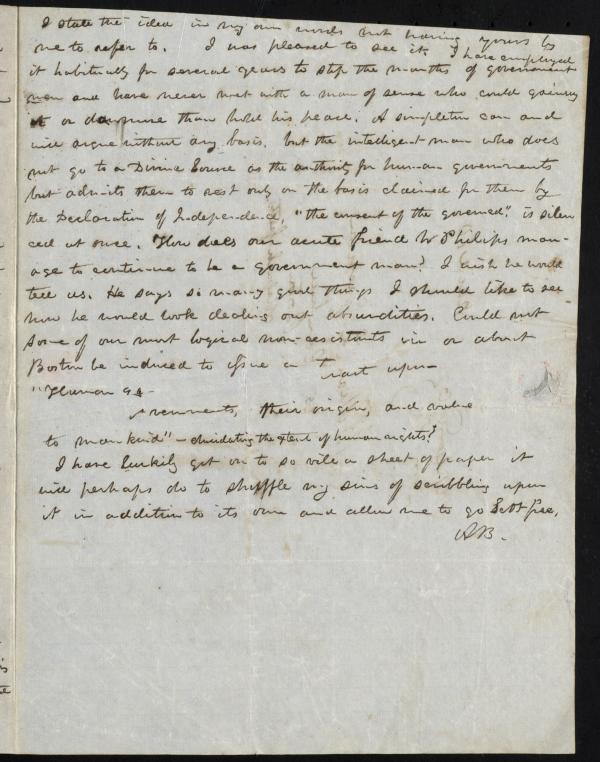 I state the idea in my own words not having yours by
me to refer to. I was pleased to see it. I have employed
it habitually for several years to stop the mouths of government
men and have never met with a man of sense who could gainsay
it or do more than hold his peace. A simpleton can and
will argue without any basis, but the intelligent man who does
not go to a Divine Source as the authority for human governments
but admits them to rest only on the basis claimed for them by
the Declaration of Independence, "the consent of the governed", is silen
ced at once. How does our acute friend W Philips man-
age to continue to be a government man? I wish he would
tell us. He says so many good things I should like to see
how he would look dealing out absurdities. Could not
some of our most logical non-resistants in or about
Boston be induced to issue a Tract upon
"Human Go
vernments, their origin, and value
to mankind" – elucidating the extent of human rights?
I have luckily got on to so vile a sheet of paper it
will perhaps do to shuffle my sins of scribbling upon
it in addition to its own and allow me to go Scot free.